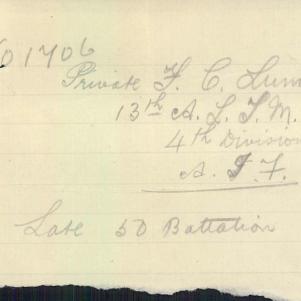 01706
Private F. C. Lum
13th A. L. T. M.
4th Division
A. I. F.
Late 50 Battalion